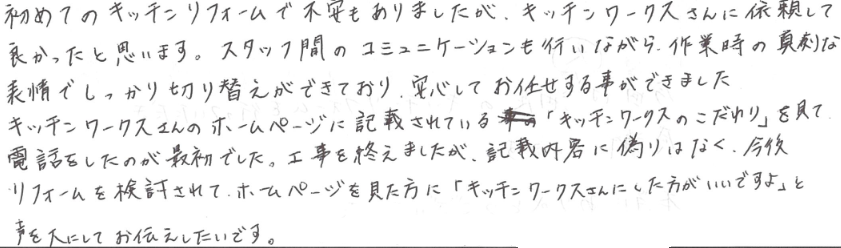 初めてのキッチンリフォームで不安もありましたが、キッチンワークスさんに依頼して
良かったと思います。スタッフ間のコミュニケーションも行いながら、作業時の真剣な
表情でしっかり切り替えができており、安心してお任せする事ができました
キッチンワークスさんのホームページに記載されている「キッチンワークスのこだわり」を見て、
電話をしたのが最初でした。工事を終えましたが、記載内容に偽りはなく、今後
リフォームを検討されて、ホームページを見た方に「キッチンワークスさんにした方がいいですよ」と
声を大にしてお伝えしたいです。